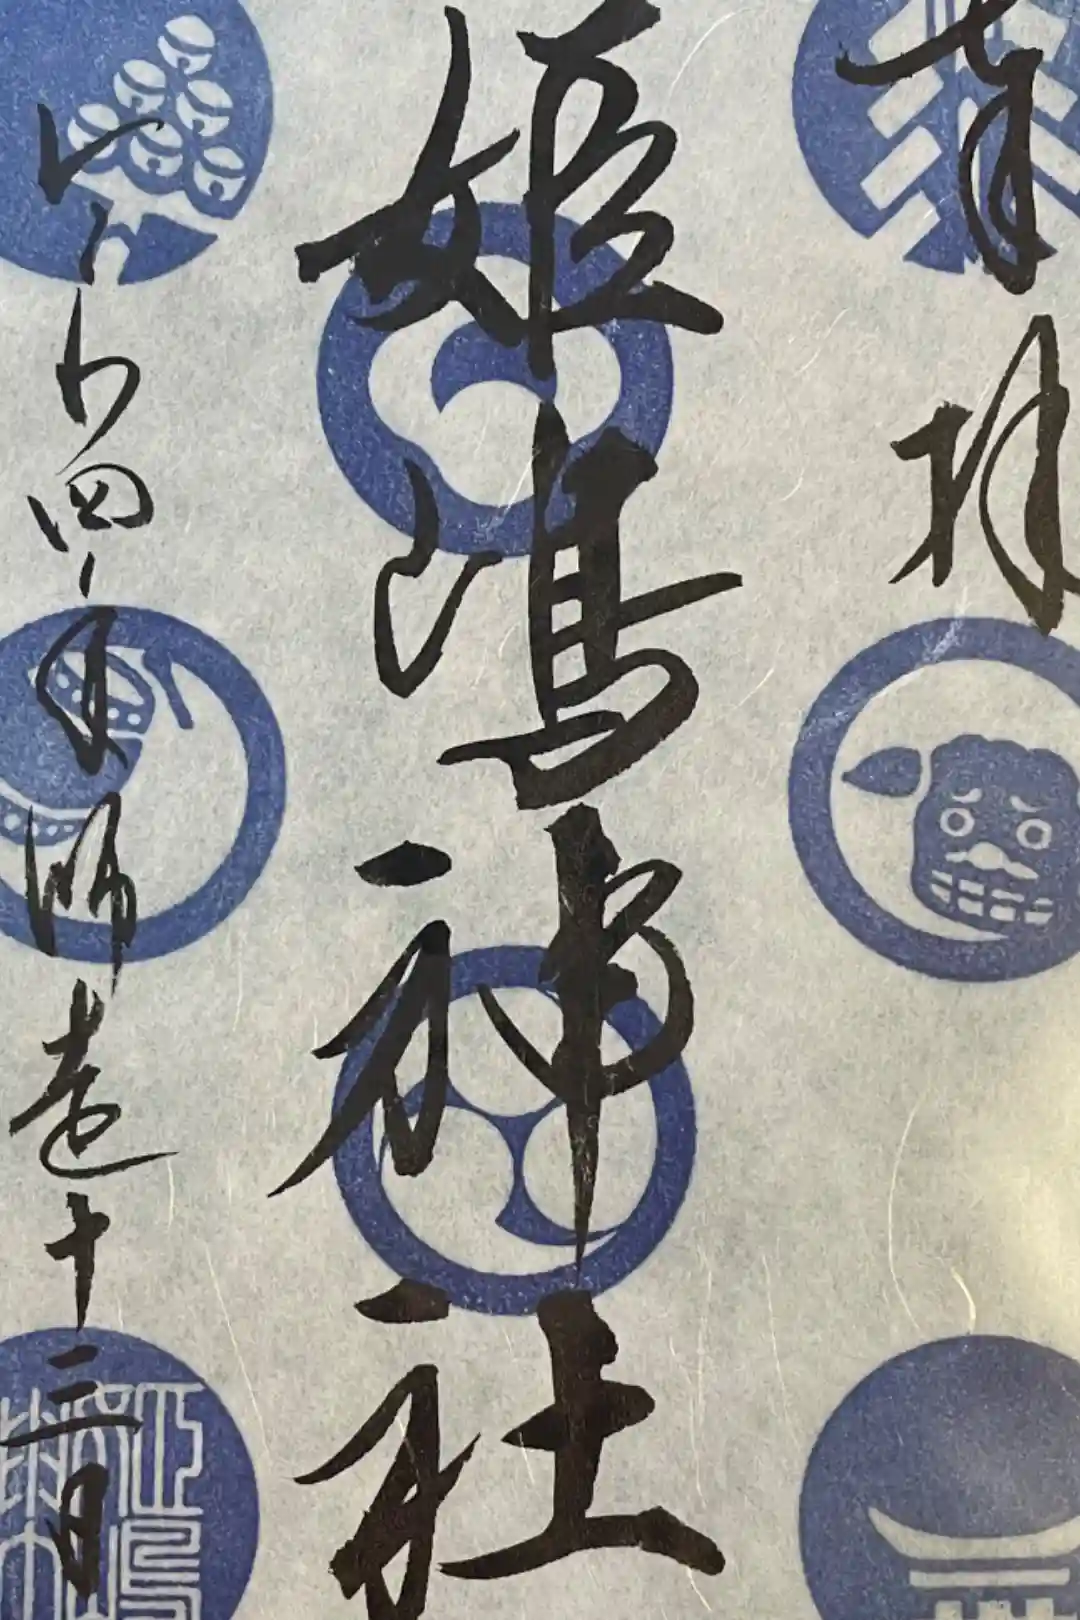 奉拝
姫嶋神社
令和四年師走十二月